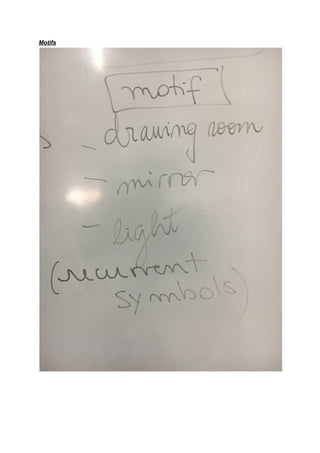 Motifs
motif
- drawing room
- mirror
- light
(recurrent
symbols)